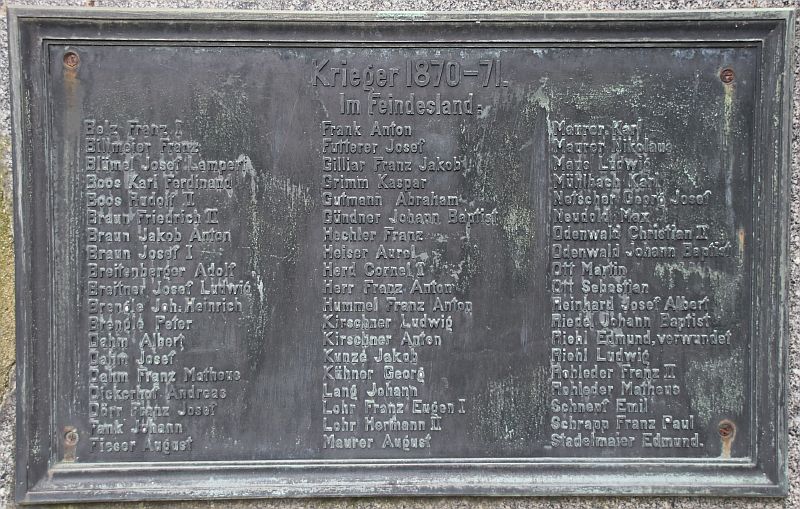 Krieger 1870-71.
Im Feindesland:
Belz Franz I
Billmeier Franz
Blümel Josef Lampert
Boos Karl Ferdinand
Boos Rudolf II
Braun Friedrich II
Braun Jakob Anton
Braun Josef I
Breitenberger Adolf
Breitner Josef Ludwig
Brengle Joh. Heinrich
Brengle Peter
Dahm Albert
Dahm Josef
Dahm Franz Matheus
Dickerhof Andreas
Dörr Franz Josef
Fank Johann
Fieser August
Frank Anton
Futterer Josef
Gilliar Franz Jakob
Grimm Kaspar
Gutmann Abraham
Gündner Johann Baptist
Hechler Franz
Heiser Aurel
Herd Cornel I
Herr Franz Anton
Hummel Franz Anton
Kirschner Ludwig
Kirschner Anton
Kunze Jakob
Kühner Georg
Lang Johann
Lohr Franz Eugen I
Lohr Hermann II
Maurer August
Maurer Karl
Maurer Nikolaus
Ludwig
Mühlbach Karl
Netscher Georg Josef
Neudold Max
Odenwald Christian II
Odenwald Johann Baptist
Ott Martin
Ott Sebastian
Reinhard Josef Albert
Riedel Johann Baptist
Riehl Edmund, verwundet
Riehl Ludwig
Rohleder Franz II
Rohleder Matheus
Schnepf Emil
Schrapp Franz Paul
Stadelmaier Edmund.